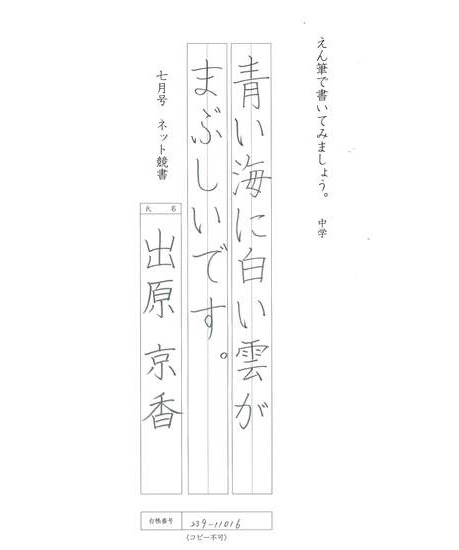 えん筆で書いてみましょう。 中学
青い海に白い雲が
まぶしいです。
七月号 ネット競書
氏名
出原 京香
台帳番号 239-11016
(コピー不可)